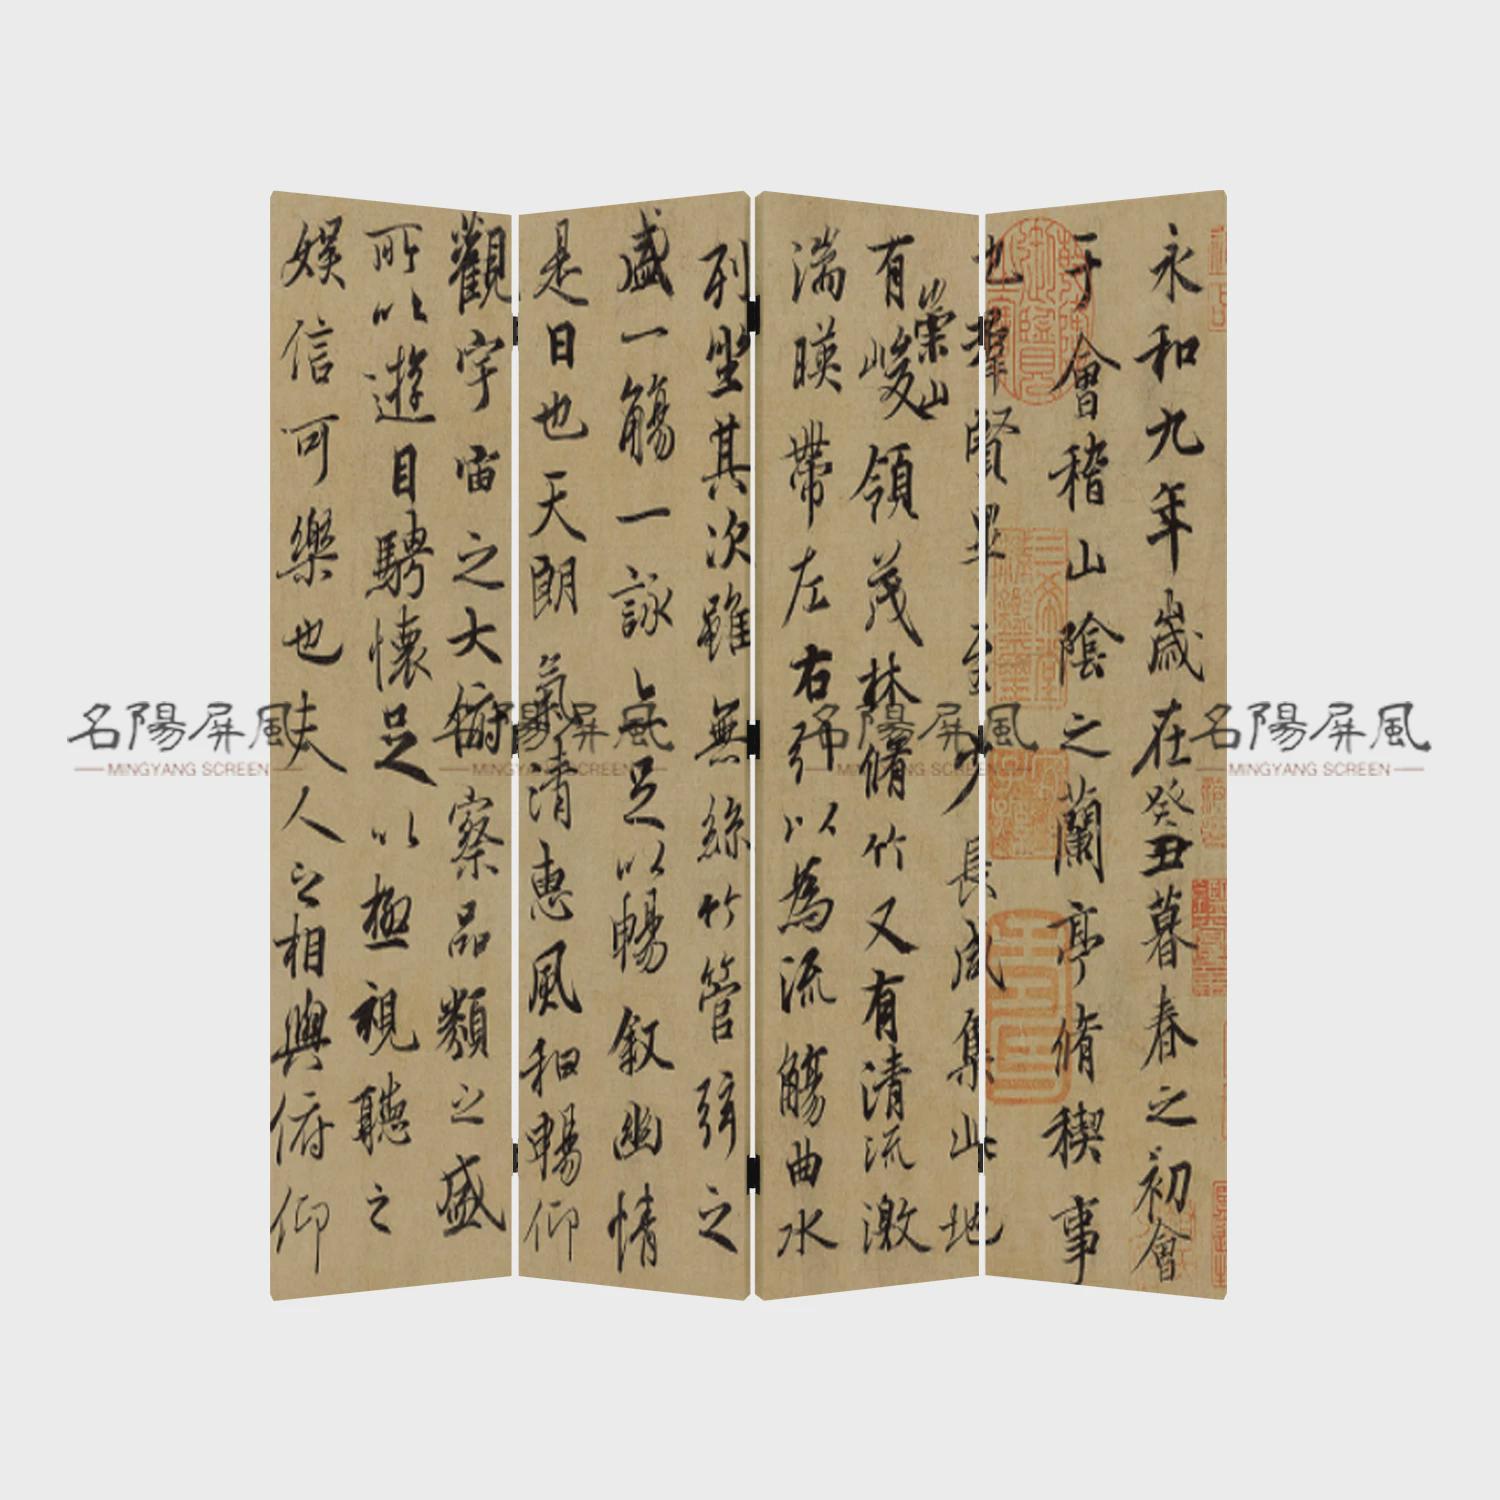 永和九年歲在癸丑暮春之初會
于會稽山陰之蘭亭脩稧事
也羣賢畢至少長咸集此地
有崇山峻領茂林脩竹又有清流激
湍暎帶左右引以為流觴曲水
列坐其次雖無絲竹管弦之
盛一觴一詠亦足以暢叙幽情
是日也天朗氣清惠風和暢仰
觀宇宙之大俯察品類之盛
所以遊目騁懷足以極視聽之
娛信可樂也夫人之相與俯仰
三希堂
名陽屏風 名陽屏風 名陽屏風 名陽屏風
MINGYANG SCREEN MINGYANG SCREEN MINGYANG SCREEN MINGYANG SCREEN